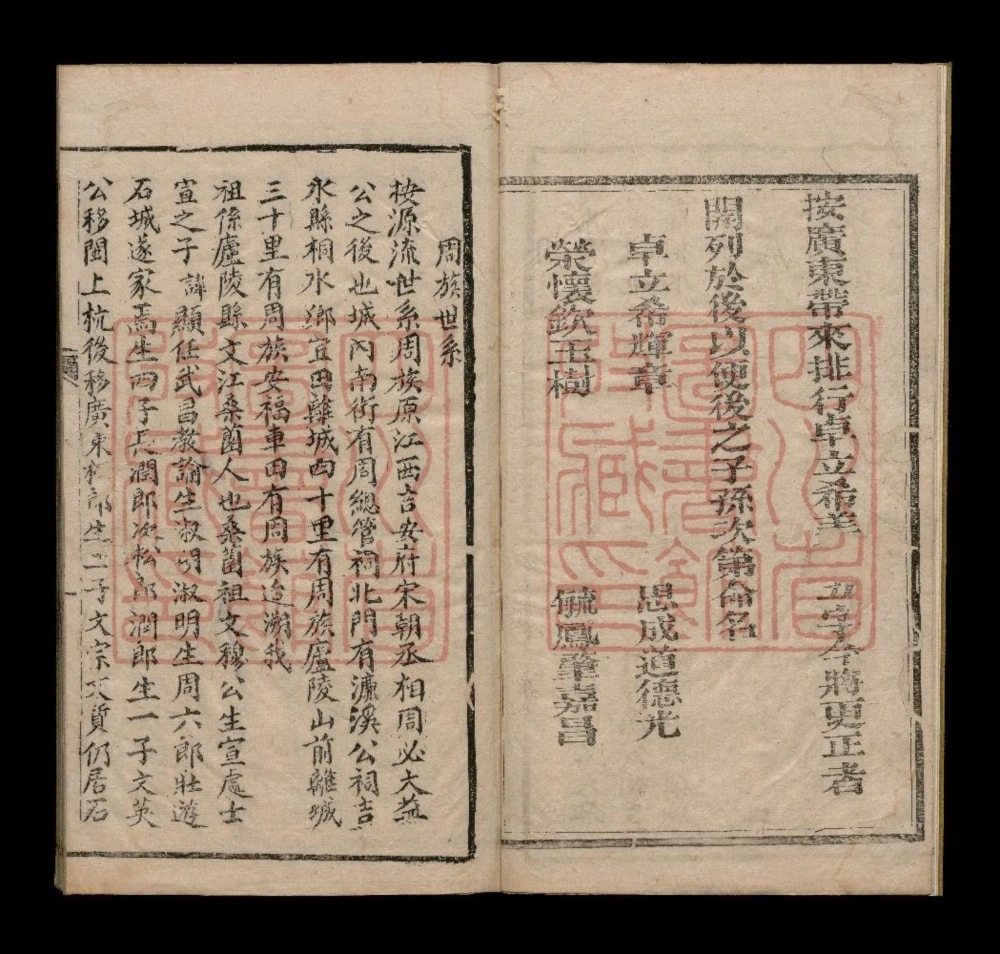 按廣東帶來排行卓立希美 五字今將更正者
開列於後以便後之子孫次第命名
卓立希輝章 思成道德光
榮懷欽玉樹 毓鳳肇嘉昌
周族世系
按源流世系周族原江西吉安府宋朝丞相周必大益
公之後也城內南街有周總管祠北門有濂溪公祠吉
永縣桐水鄉宜田離城四十里有周族廬陵山前離城
三十里有周族安福車田有周族追溯我
祖係廬陵縣文江桑園人也桑園祖文穆公生宣處士
宣之子諱顯任武昌教諭生淑明淑明生周六郎壯遊
石城遂家焉生四子長潤郎次松郎潤郎生一子文英
公移閩上杭後移廣東松郎生二子文宗文質仍居石